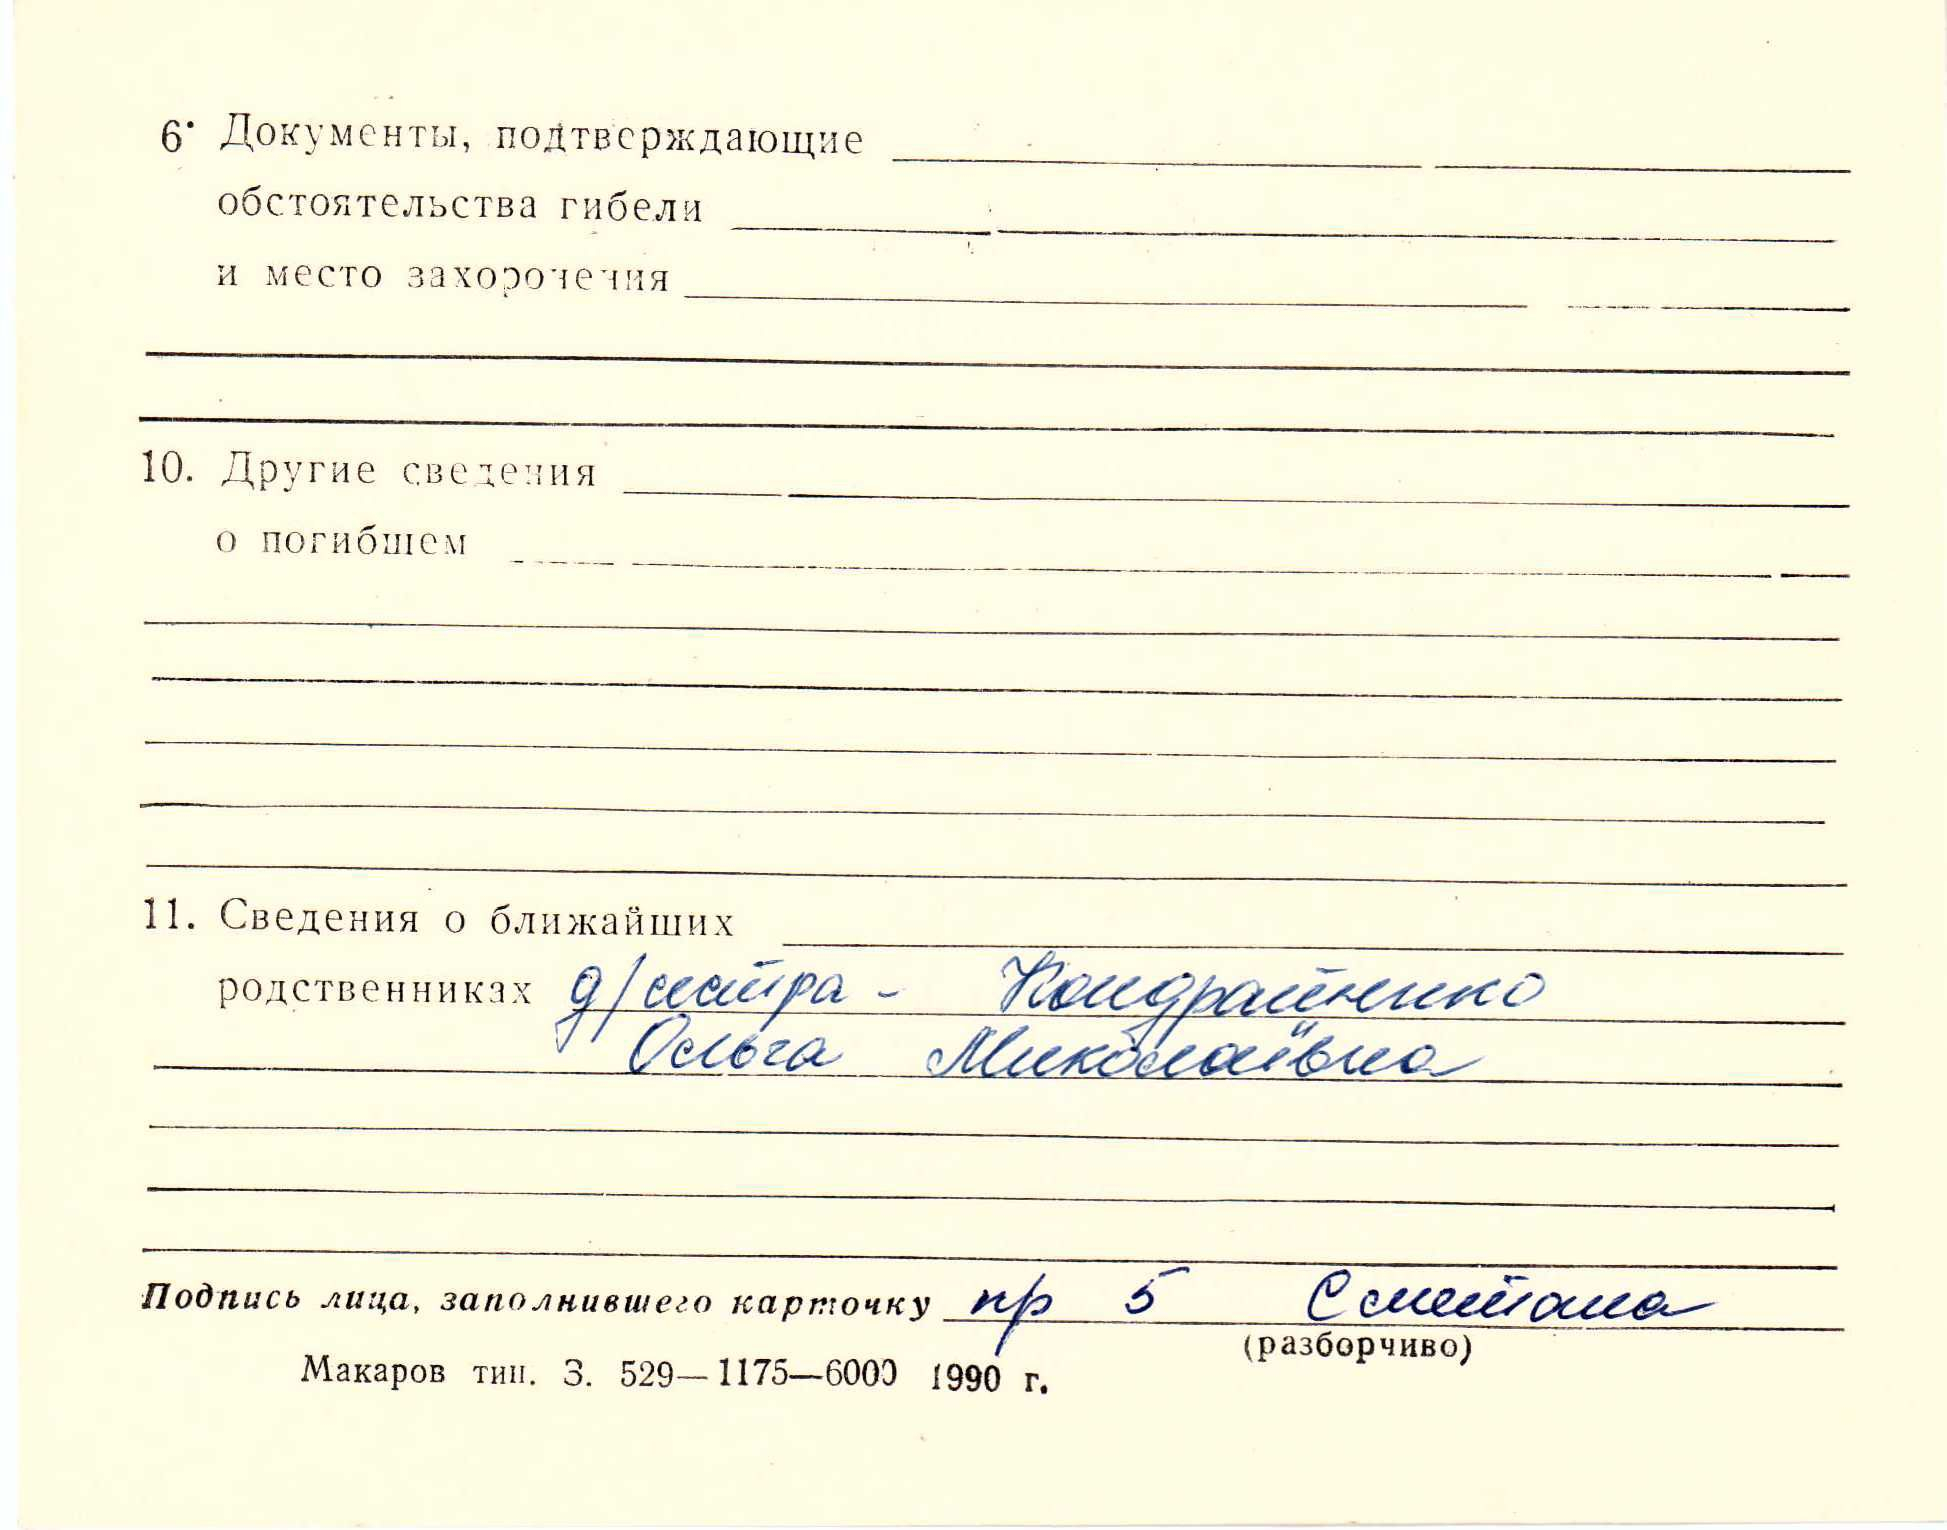 6. Документы, подтверждающие
обстоятельства гибели
и место захоронения
10. Другие сведения
о погибшем
11. Сведения о ближайших
родственниках д/сестра - Кондратенко
Ольга Миколаївна
Подпись лица, заполнившего карточку пр 5 Сметана
(разборчиво)
Макаров тип. З. 529—1175—6000 1990 г.